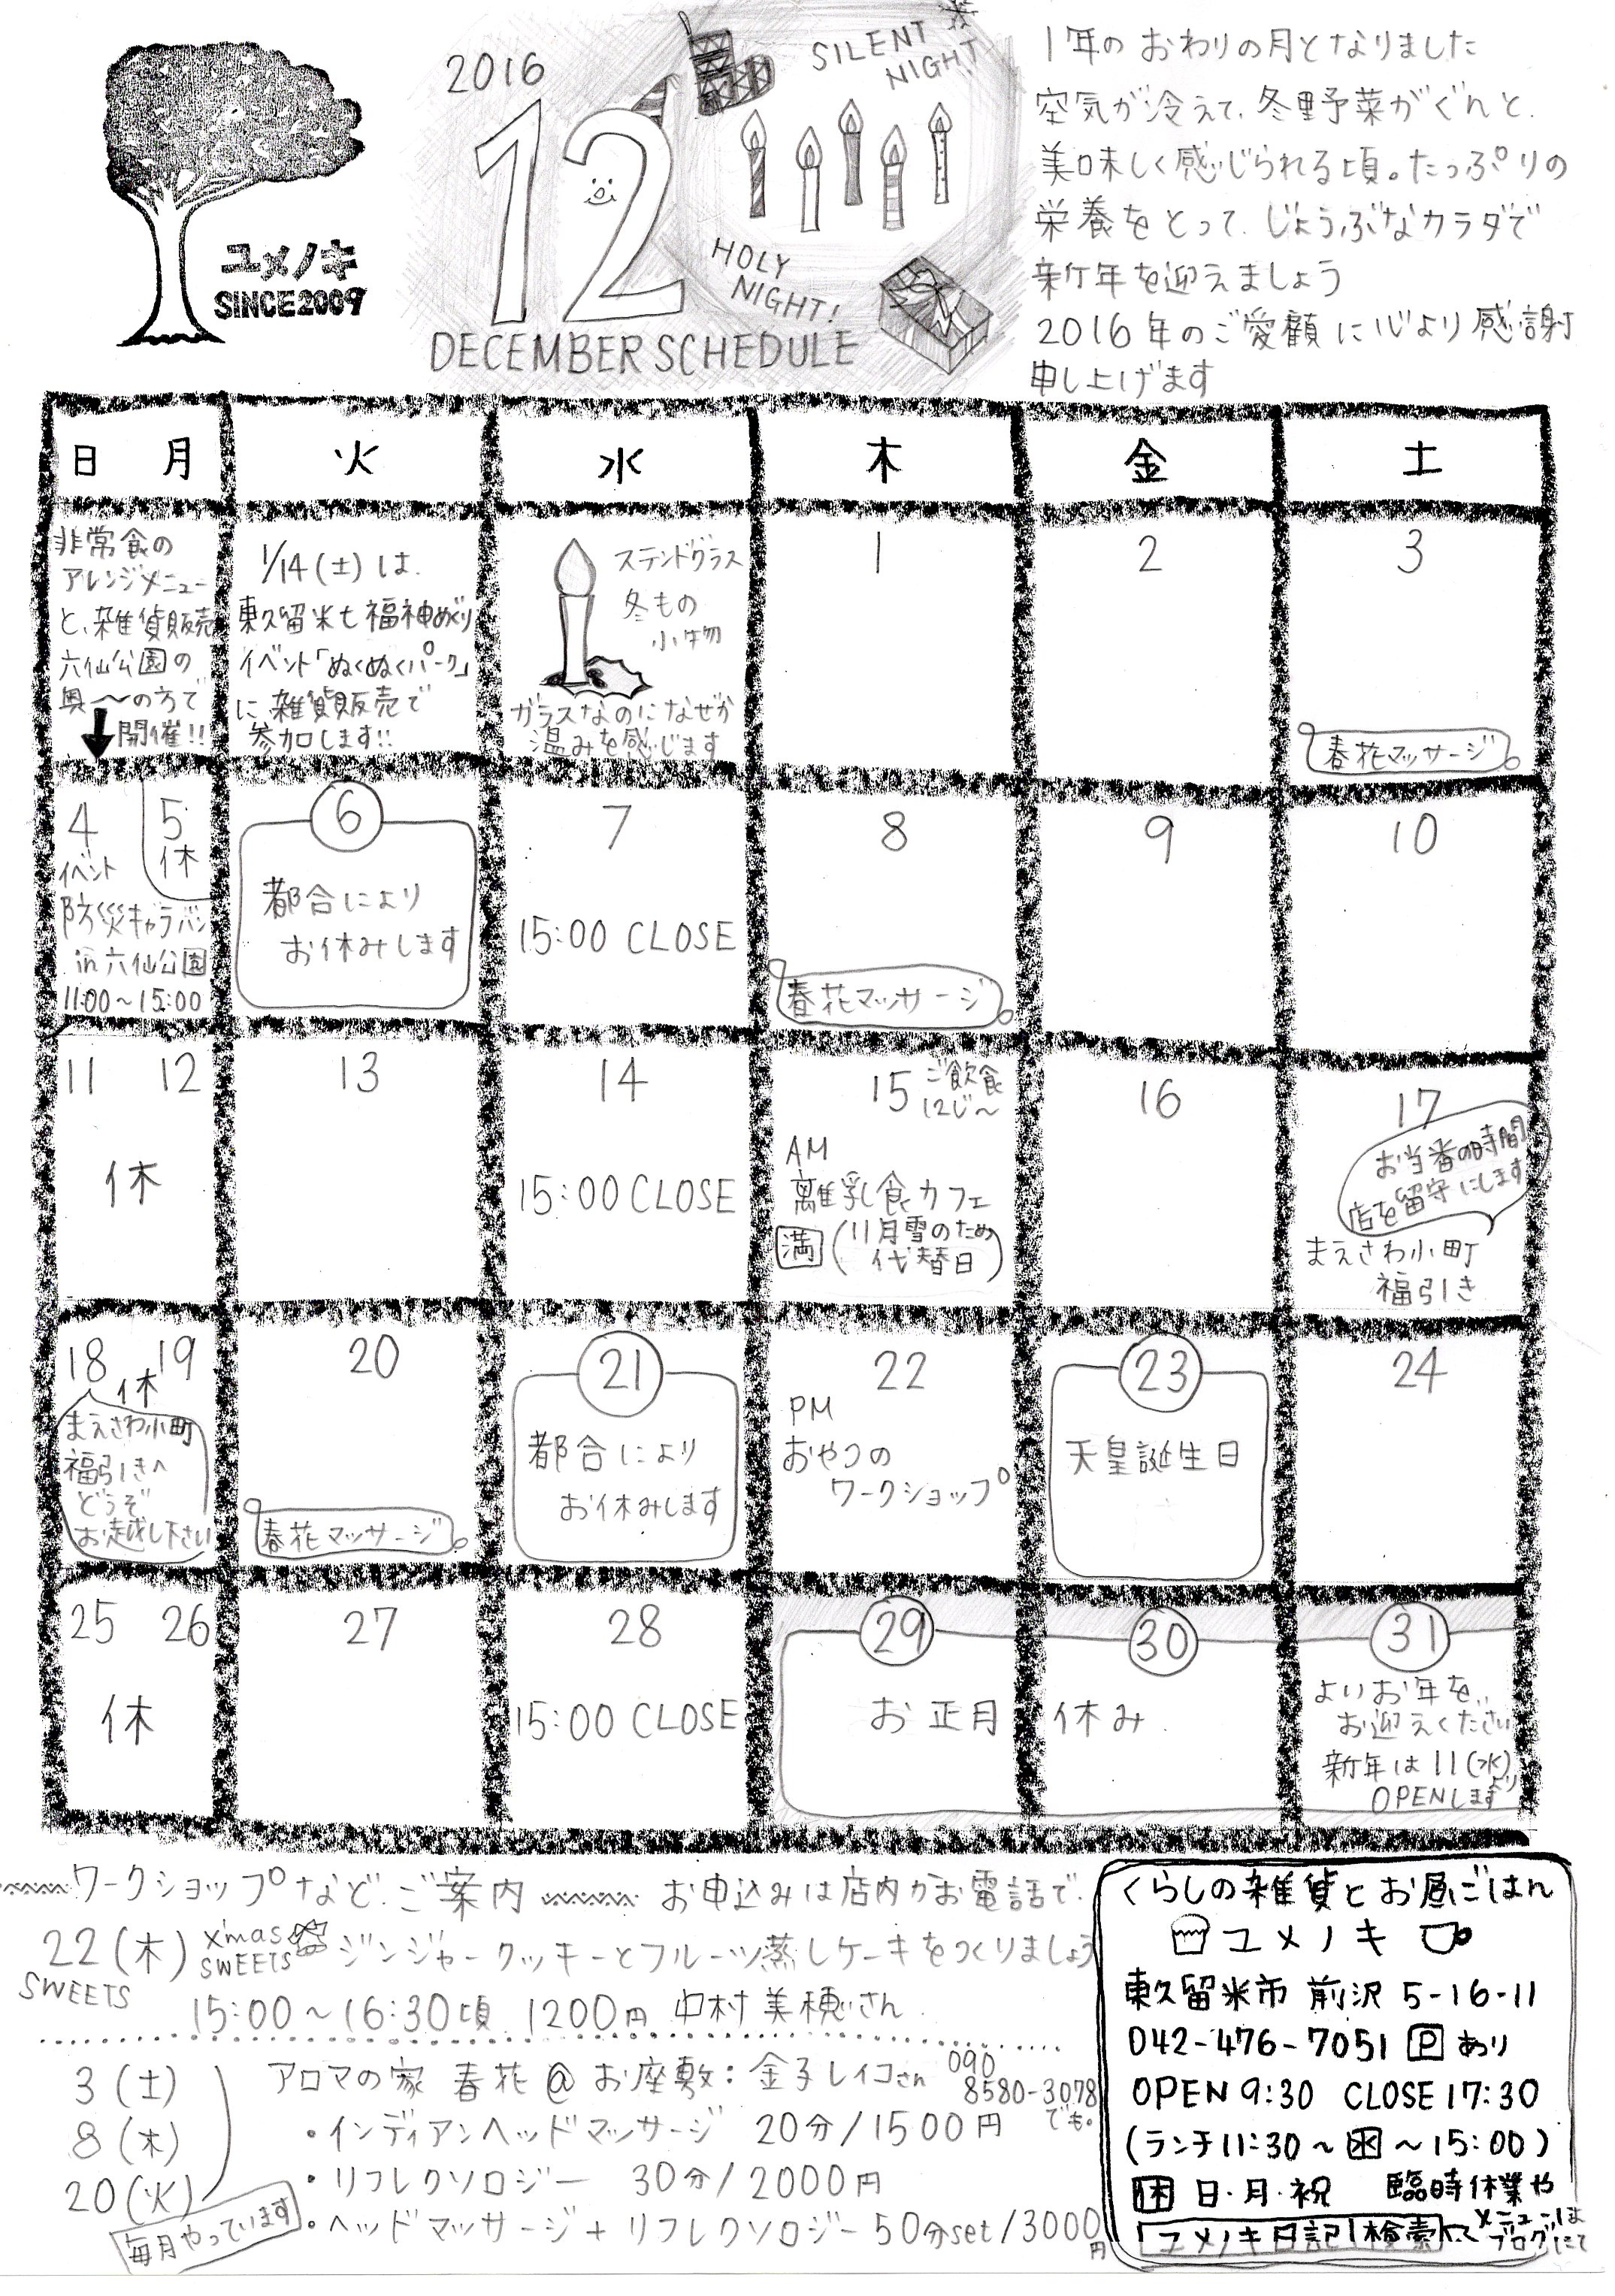 ユメノキ
SINCE2009
2016
12
DECEMBER SCHEDULE
SILENT
NIGHT
HOLY
NIGHT!
1年のおわりの月となりました
空気が冷えて、冬野菜がぐんと、
美味しく感じられる頃。たっぷりの
栄養をとって、じょうぶなカラダで
新年を迎えましょう
2016年のご愛顧に心より感謝
申し上げます
日 月 火 水 木 金 土
非常食の
アレンジメニュー
と、雑貨販売
六仙公園の
奥〜の方で
開催!!
1/14(土)は、
東久留米七福神めぐり
イベント「ぬくぬくパーク」
に、雑貨販売で
参加します!!
ステンドグラス
冬もの
小物
ガラスなのになぜか
温みを感じます
1
2
3
春花マッサージ
4
イベント
防災キャラバン
in 六仙公園
11:00〜15:00
5
休
6
都合により
お休みします
7
15:00 CLOSE
8
春花マッサージ
9
10
11 12
休
13
14
15:00 CLOSE
15 ご飲食
12じ〜
AM
離乳食カフェ
満 (11月雪のため
代替日)
16
17
お当番の時間
店を留守にします
まえさわ小町
福引き
18 19
休
まえさわ小町
福引きへ
どうぞ
お越し下さい
20
春花マッサージ
21
都合により
お休みします
22
PM
おやつの
ワークショップ
23
天皇誕生日
24
25 26
休
27
28
15:00 CLOSE
29 30 31
お正月休み
よいお年を、
お迎えください
新年は11(水)より
OPENします
ワークショップなど、ご案内 お申込みは店内かお電話で、
22(木) x'mas SWEETS ジンジャークッキーとフルーツ蒸しケーキをつくりましょう
SWEETS
15:00〜16:30頃 1200円 中村美穂さん
3(土)
8(木)
20(火)
毎月やっています
アロマの家 春花@お座敷:金子レイコさん 090
8580-3078
でも。
・インディアンヘッドマッサージ 20分/1500円
・リフレクソロジー 30分/2000円
・ヘッドマッサージ+リフレクソロジー50分set/3000円
くらしの雑貨とお昼ごはん
ユメノキ
東久留米市 前沢 5-16-11
042-476-7051 Pあり
OPEN 9:30 CLOSE 17:30
(ランチ11:30〜 水 〜15:00)
休 日・月・祝 臨時休業や
ユメノキ日記 検索 メニューは
ブログにて